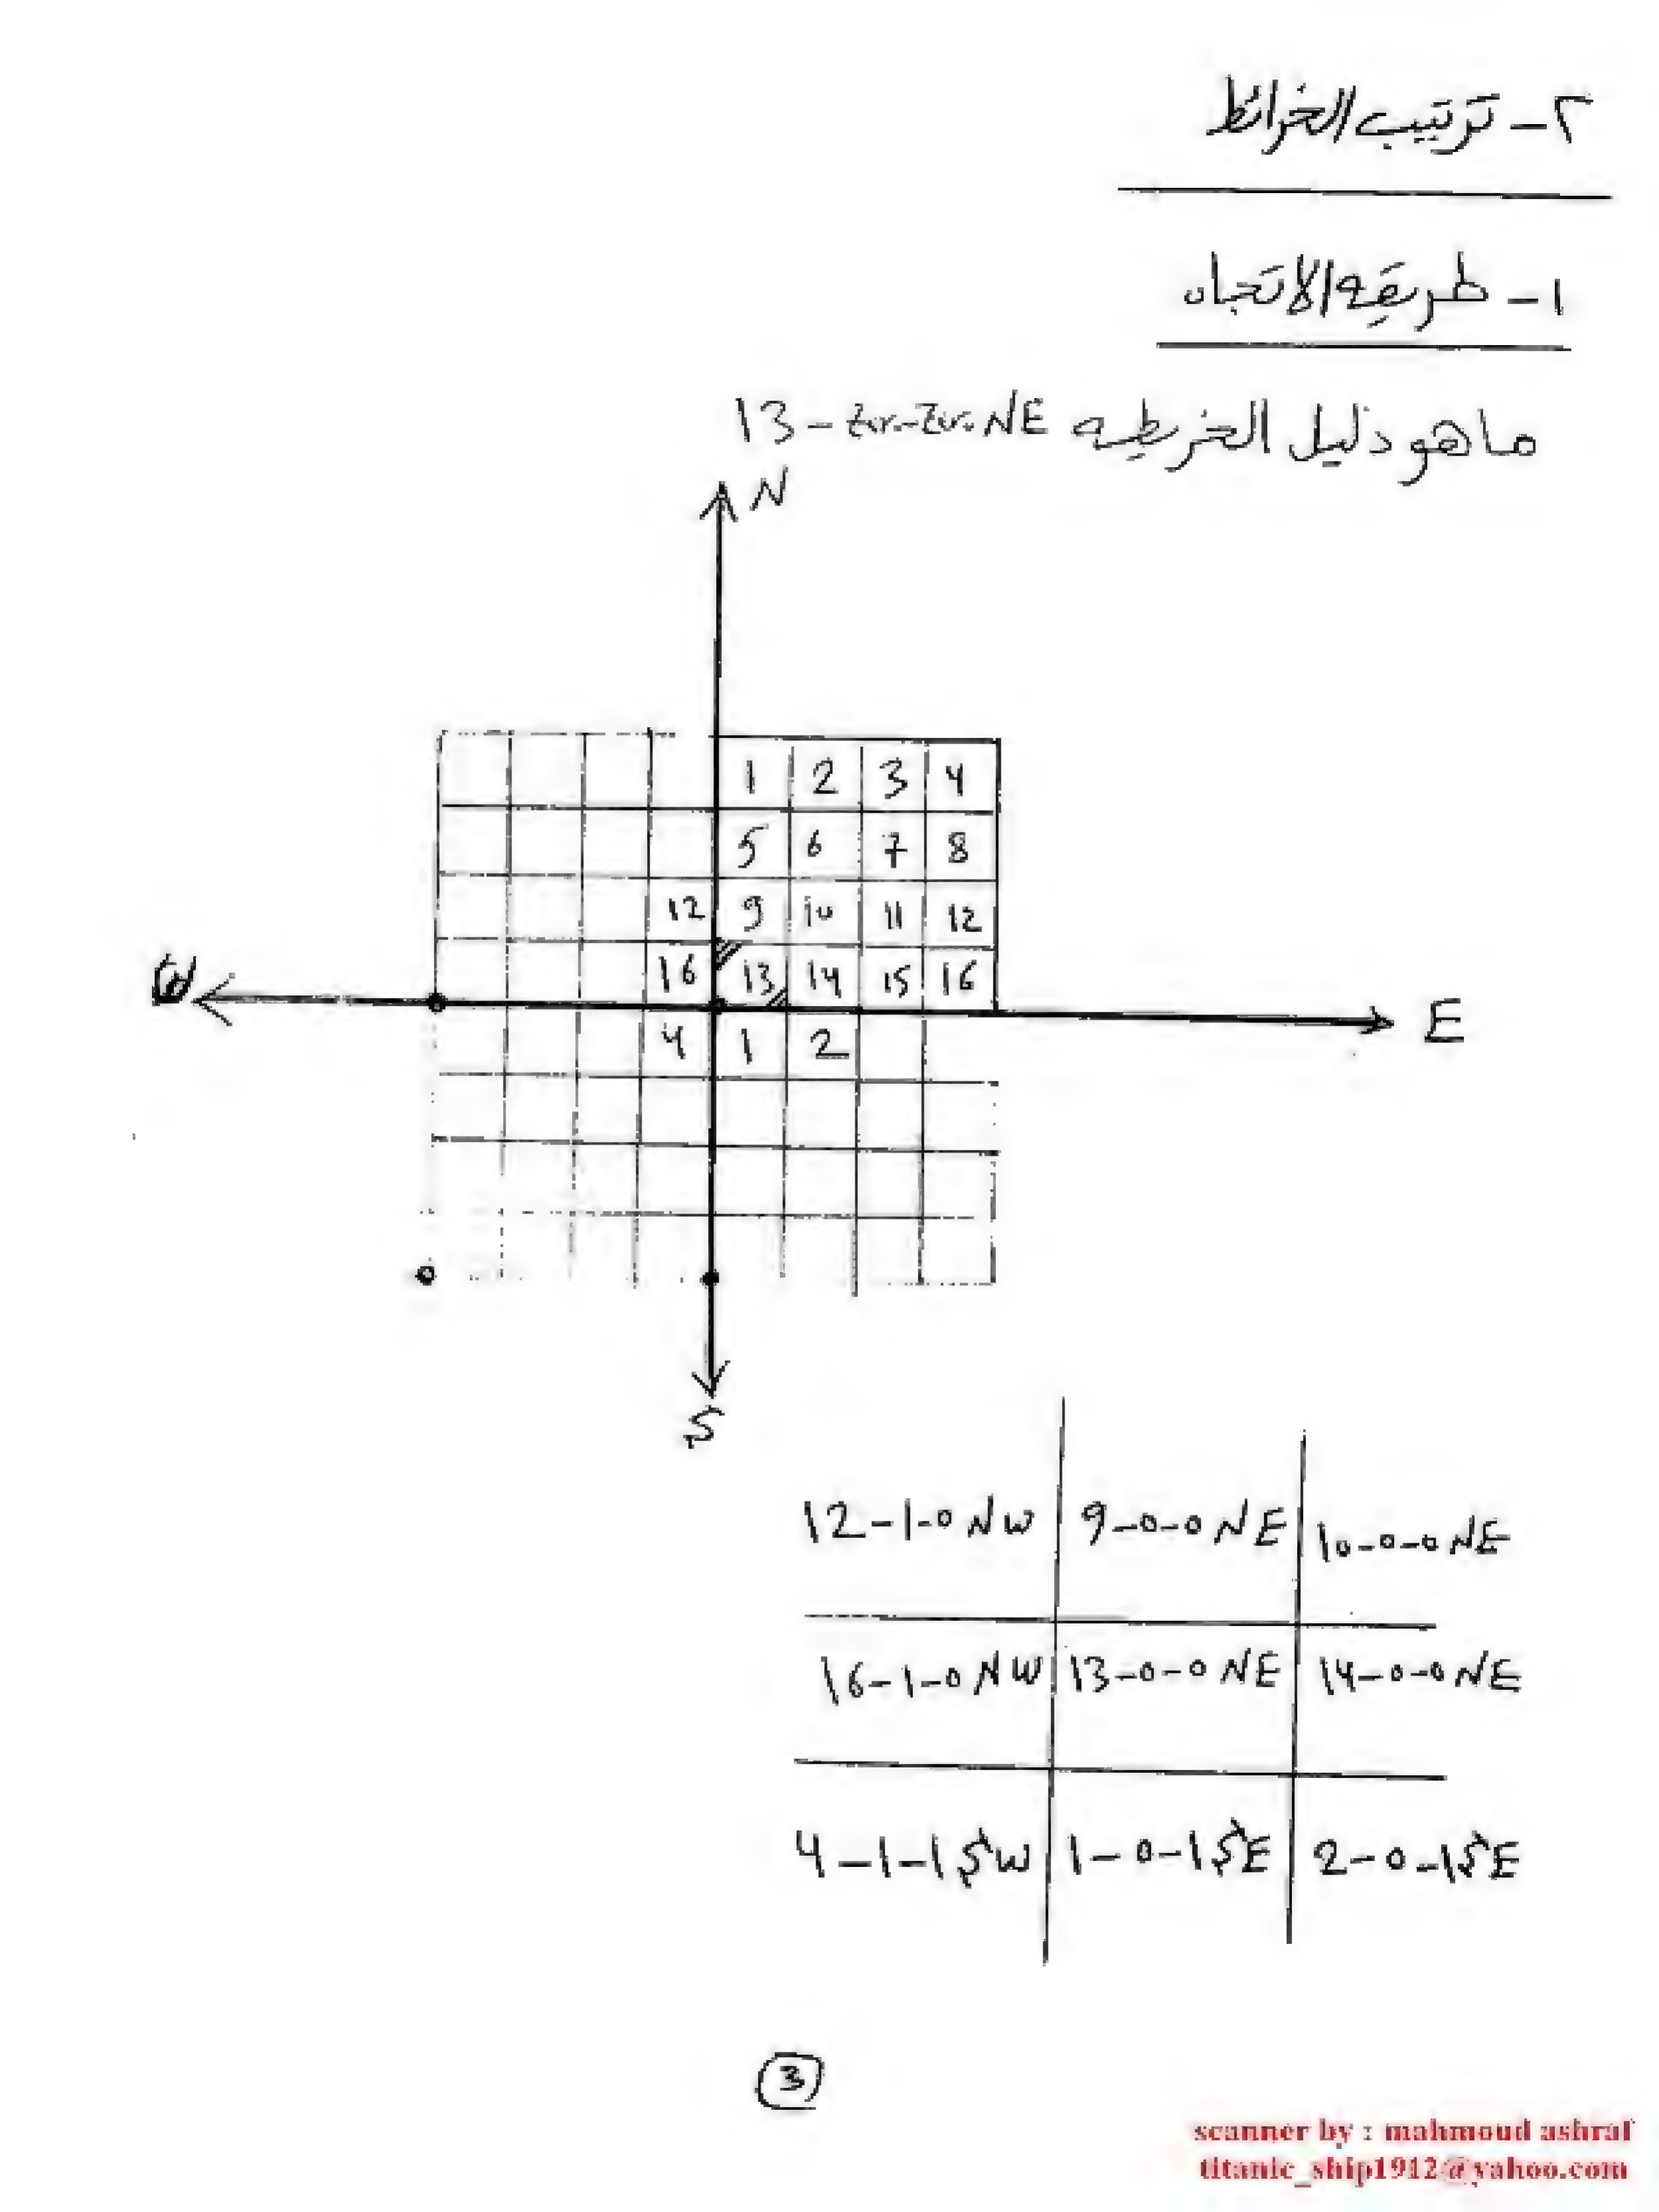 ٢- ترتيب الخرائط
١- طريقه الاتجاه
ما هو دليل الخريطه 13-zero-zero NE
N
1 2 3 4
5 6 7 8
12 9 10 11 12
16 13 14 15 16
W E
4 1 2
S
12-1-0 NW 9-0-0 NE 10-0-0 NE
16-1-0 NW 13-0-0 NE 14-0-0 NE
4-1-1 SW 1-0-1 SE 2-0-1 SE
3
scanner by : mahmoud ashraf
titanic_ship1912@yahoo.com